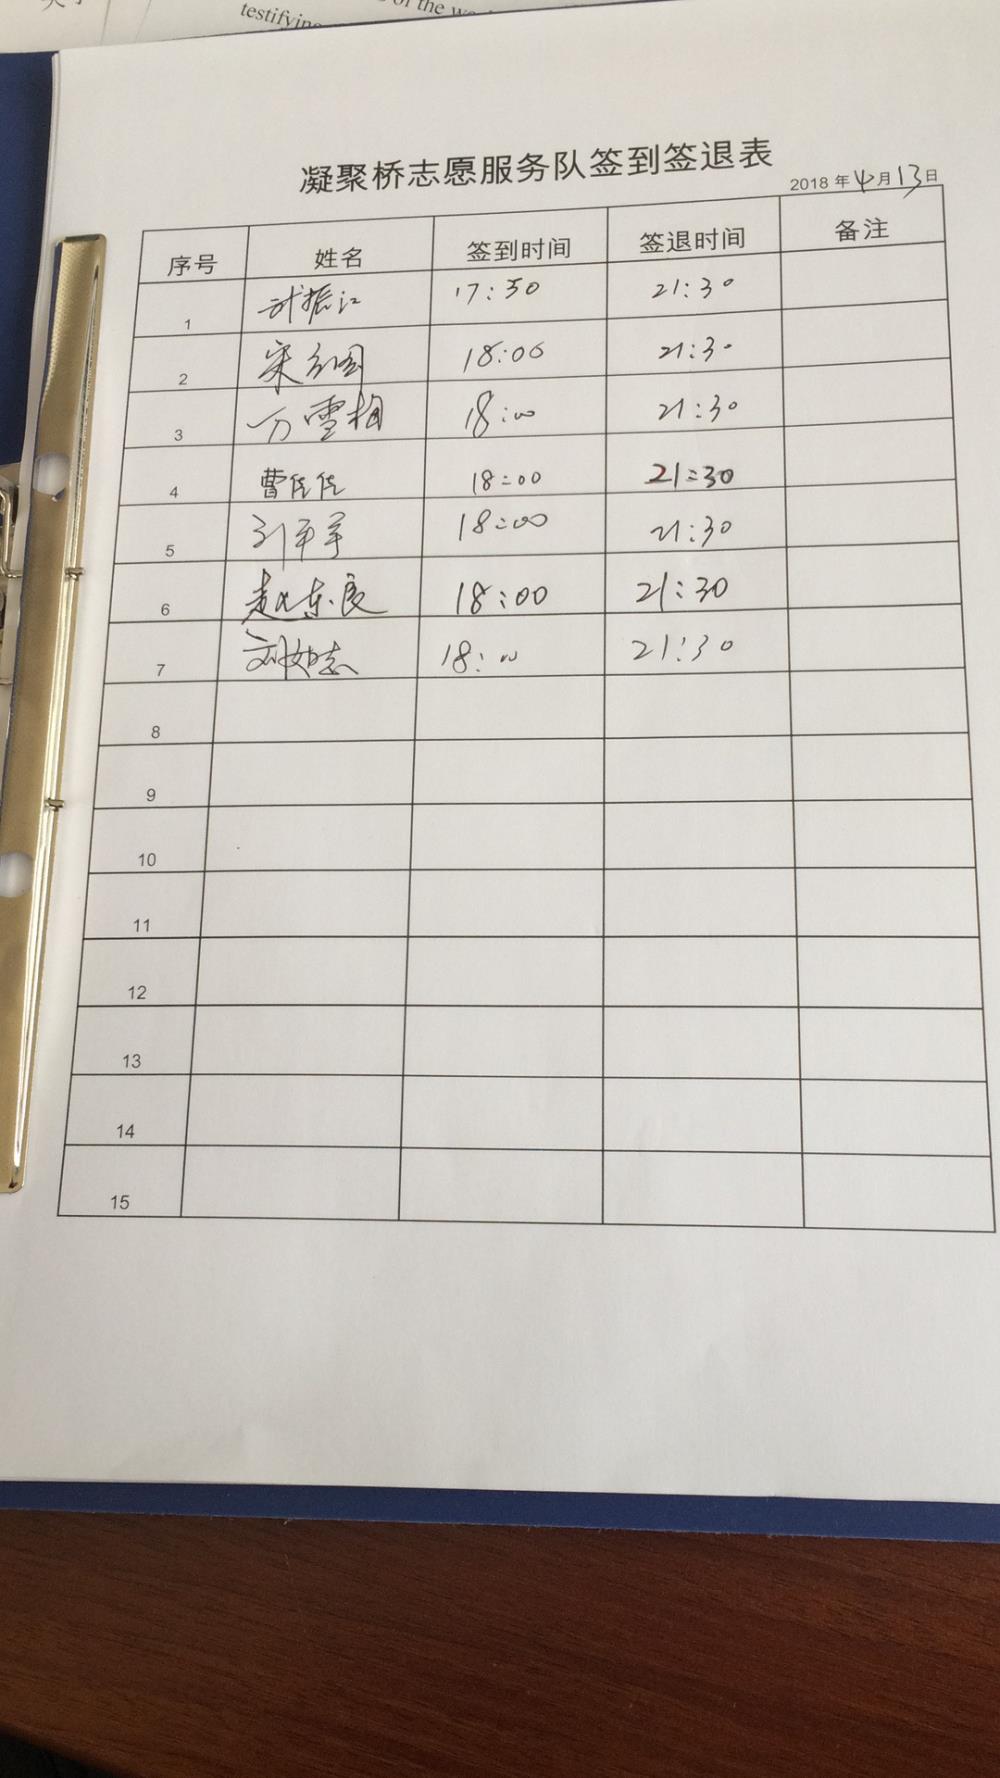 testifying
of the
凝聚桥志愿服务队签到签退表
2018 年 4 月 13 日
序号 姓名 签到时间 签退时间 备注
1 振江 17:50 21:30
2 宋 18:00 21:30
3 万雪梅 18:00 21:30
4 曹佳佳 18:00 21:30
5 刘平军 18:00 21:30
6 赵东良 18:00 21:30
7 刘如志 18:00 21:30
8
9
10
11
12
13
14
15